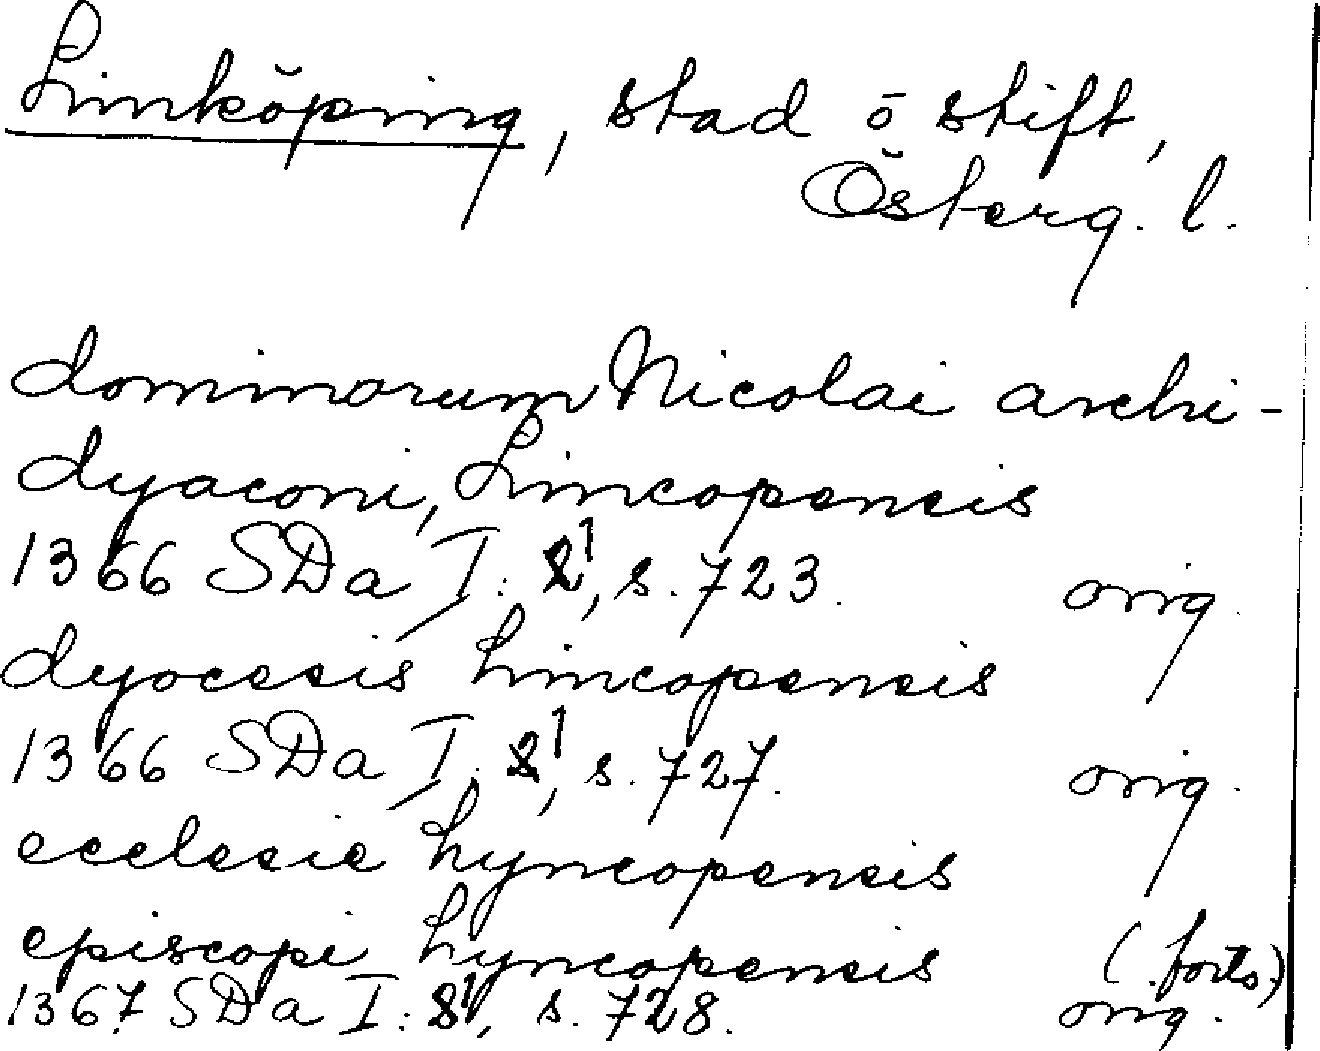 Linköping, stad ō stift,
Österg. l.
dominorum Nicolai archi-
dyaconi, Lincopensis
1366 SDa I: 1, s. 723. orig.
dyocesis Lincopensis
1366 SDa I: 1, s. 727. orig.
ecclesie Lyncopensis
episcopi Lyncopensis (forts.)
1367 SDa I: 1, s. 728. orig.